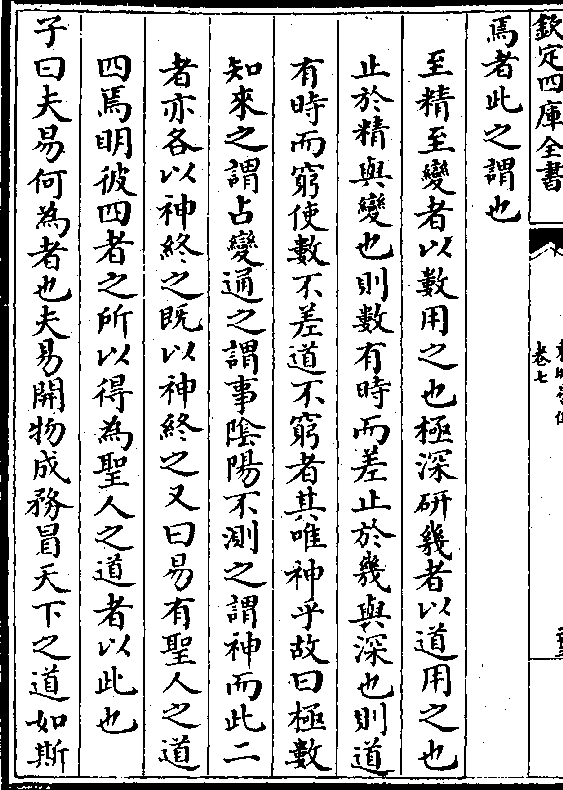 欽定四庫全書
卷七
焉者此之謂也
至精至變者以數用之也極深研幾者以道用之也
止於精與變也則數有時而差止於幾與深也則道
有時而窮使數不差道不窮者其唯神乎故曰極數
知來之謂占變通之謂事隂陽不測之謂神而此二
者亦各以神終之既以神終之又曰易有聖人之道
四焉明彼四者之所以得為聖人之道者以此也
子曰夫易何為者也夫易開物成務冒天下之道如斯